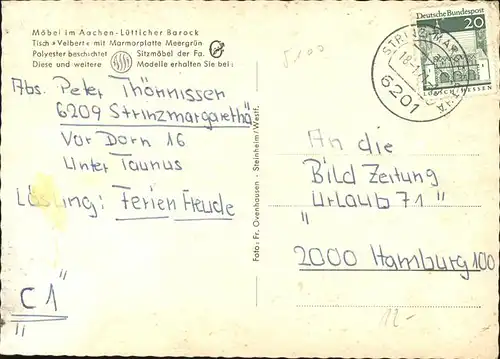 Möbel im Aachen-Lütticher Barock
Tisch »Velbert« mit Marmorplatte Meergrün
Polyester beschichtet Sitzmöbel der Fa.
Diese und weitere Modelle erhalten Sie bei:
Abs. Peter Thönnissen
6209 Strinzmargarethä
Vor Dorn 16
Unter Taunus
Lösung: Ferien Freude
C1"
Foto: Fr. Ovenhausen - Steinheim/Westf.
5100
Deutsche Bundespost
20
LORSCH/HESSEN
6201
An die
Bild Zeitung
"Urlaub 71"
2000 Hamburg 100
12,-